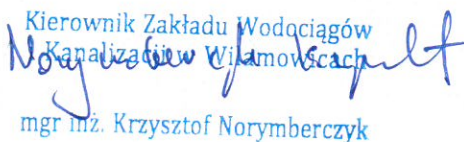 Kierownik Zakładu Wodociągów
i Kanalizacji w Wilamowicach
mgr inż. Krzysztof Norymberczyk